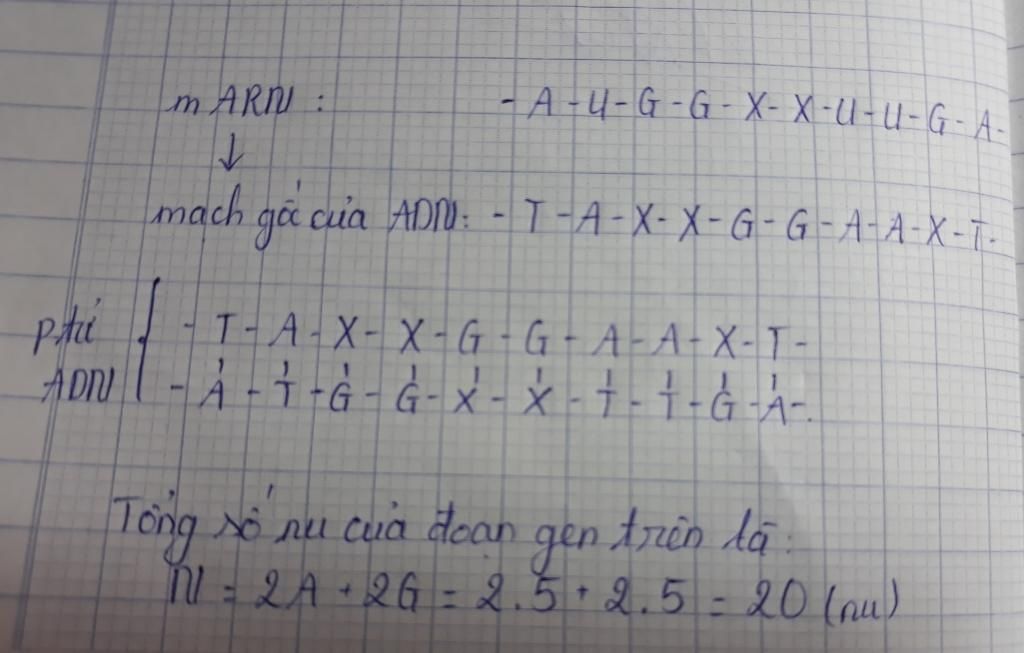 mARN : - A - U - G - G - X - X - U - U - G - A -
↓
mạch gốc của ADN: - T - A - X - X - G - G - A - A - X - T -
- T - A - X - X - G - G - A - A - X - T -
ADN - A - T - G - G - X - X - T - T - G - A -.
Tổng số nu của đoạn gen trên là:
N = 2A + 2G = 2.5 + 2.5 = 20 (nu)